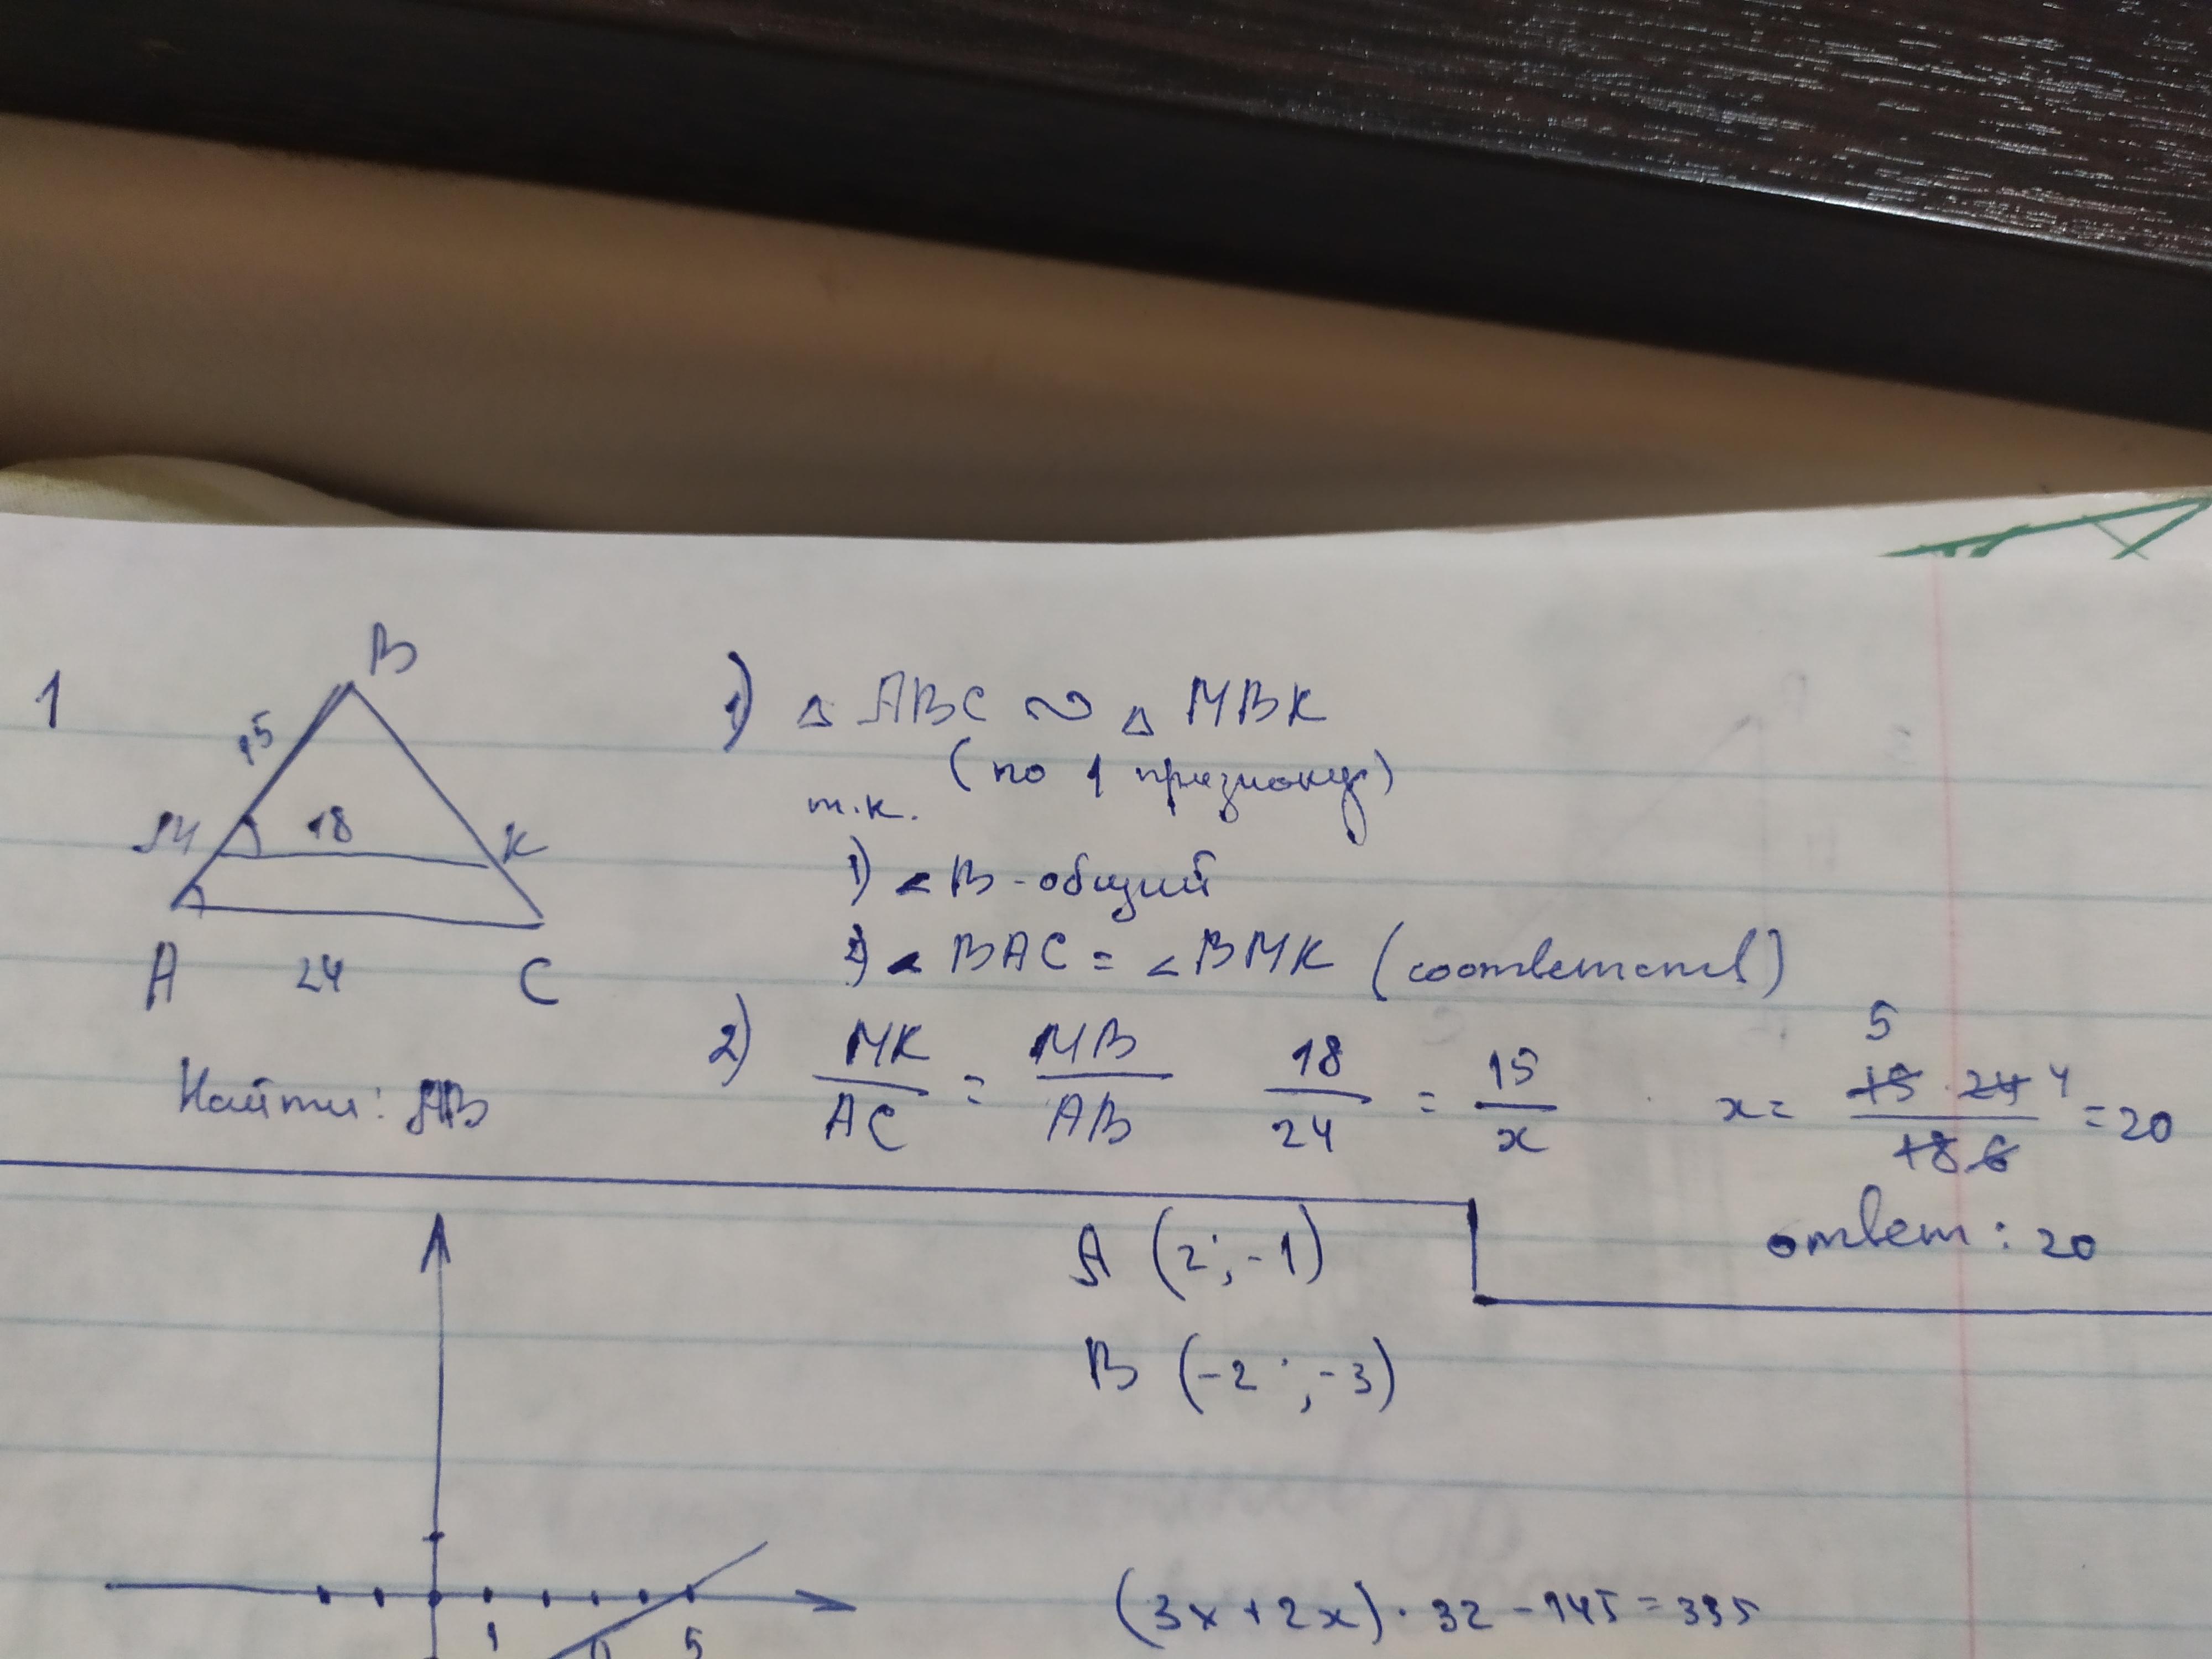 1
B
15
M 18 K
A 24 C
Найти: AB
1) △ ABC ∾ △ MBK
(по 1 признаку)
т.к.
1) ∠ B - общий
2) ∠ BAC = ∠ BMK (соответств)
2) MK/AC = MB/AB 18/24 = 15/x x = 15 · 24/18 = 20
5 4 6
ответ: 20
A (2; -1)
B (-2; -3)
(3x + 2x) · 32 - 145 = 335
1 5